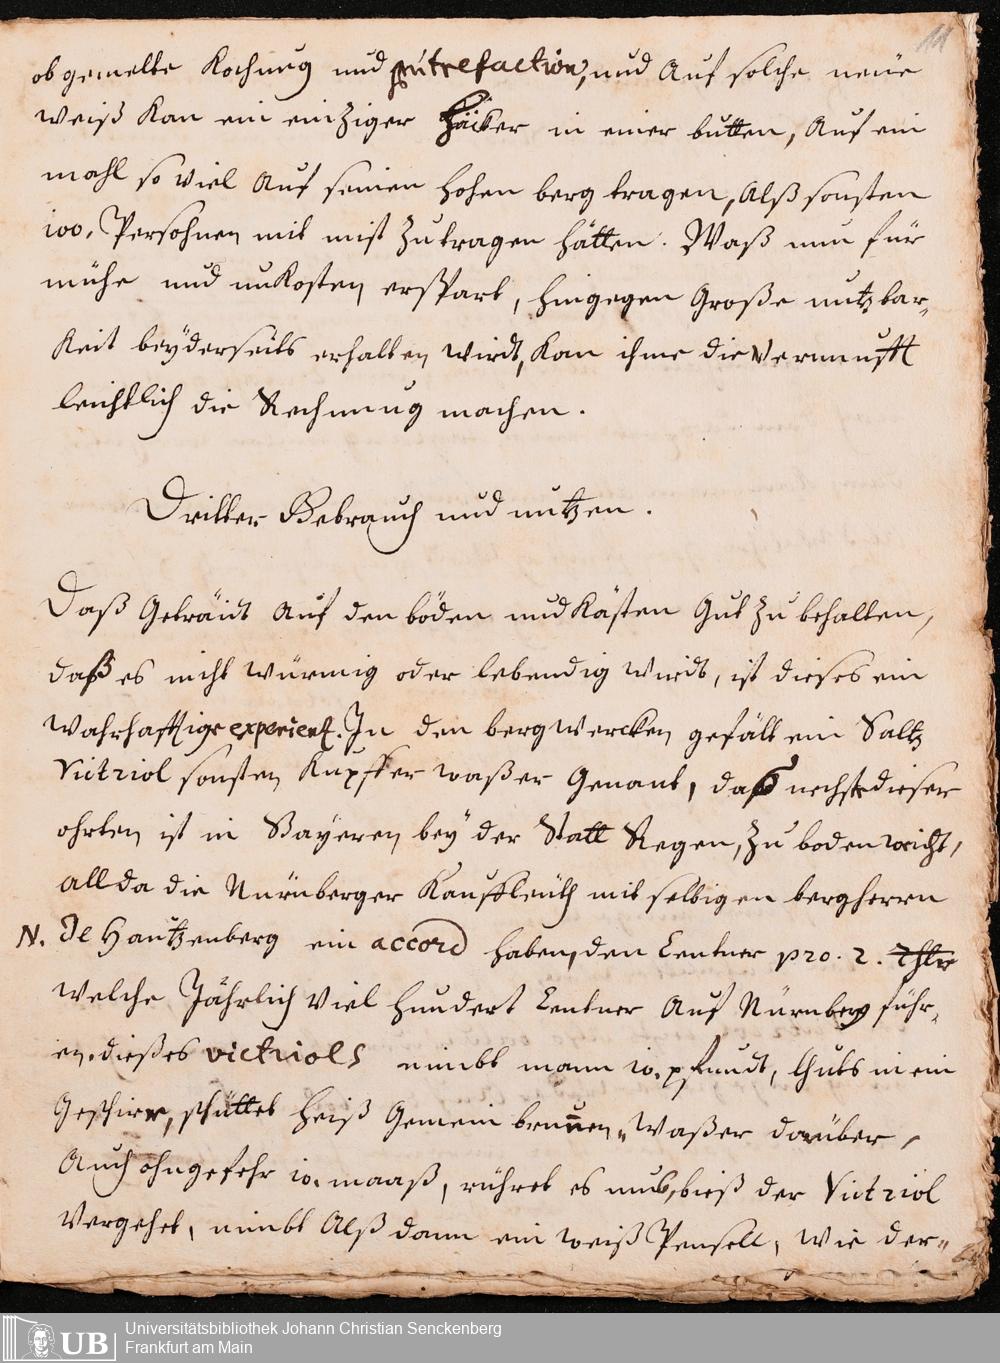 11
obgemelte Kochung und putrefaction, und Auf solche neüe
weiß Kan ein einziger Häcker in einer butten, Auf ein
mahl so viel Auf seinen hohen berg tragen, Alß sonsten
100. Persohnen mit mist Zutragen hätten. Waß nun für
mühe und unkosten erspart, hingegen Große nutzbar-
keit beÿderseits erhalten wirdt, kan ihme die Vernunfft
leichtlich die Rechnung machen.
Dritter Gebrauch und nutzen.
Daß Geträidt Auf den böden und Kästen Gut Zu behalten,
daß es nicht würmig oder lebendig wirdt, ist dieses ein
wahrhafftige experient. In den bergwercken gefält ein Saltz
Victriol sonsten Kupffer waßer Genant, daß nechst dieser
ohrten ist in Bayeren beÿ der Statt Regen, Zu boden
allda die Nürnberger Kauffleüth mit selbigen bergherrn
N. De Hautzenberg ein accord haben, den Centner pro. 2. Thlr
welche Jährlich viel hundert Centner Auf Nürnberg führ-
en. dießes victriols nimbt mann 10. pfundt, thuts in ein
Geschirr, schüttet heiß Gemein brunnen-waßer darüber,
Auch ohngefehr 10. maaß, rühret es umb, bieß der Victriol
vergehet, nimbt Alß dann ein weiß Pensell, wie der-
Universitätsbibliothek Johann Christian Senckenberg
UB Frankfurt am Main